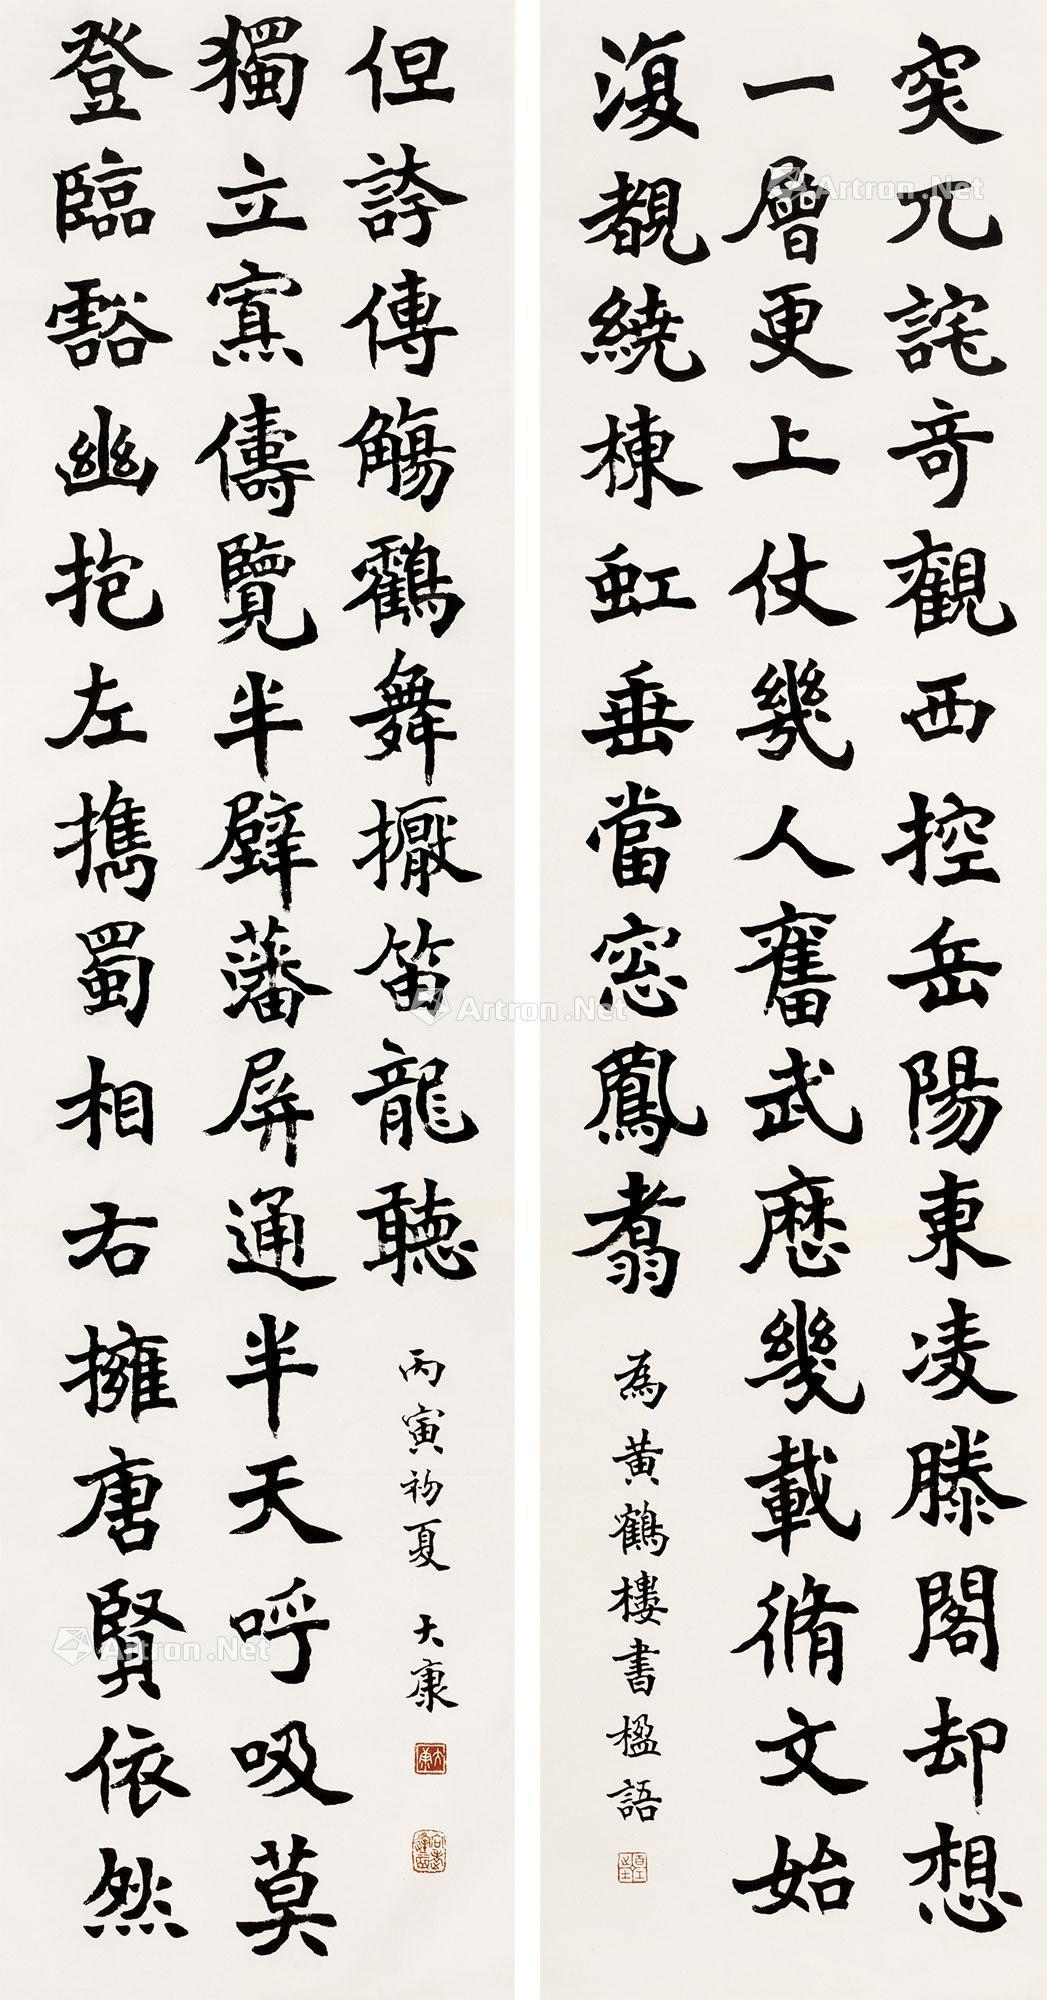 突兀詫奇觀西控岳陽東凌滕閣却想
一層更上仗幾人奮武歷幾載脩文始
復覩繞棟虹垂當窓鳳翥
為黃鶴樓書楹語
登臨豁幽抱左擕蜀相右擁唐賢依然
獨立寡儔覽半壁藩屏通半天呼吸莫
但誇傳觴鸖舞擫笛龍聽
丙寅初夏 大康
大康
Artron.Net
Artron.Net
Artron.Net